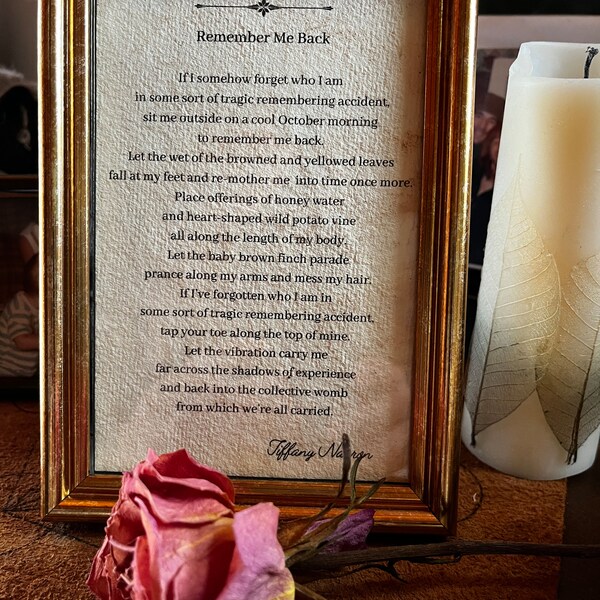 Remember Me Back
If I somehow forget who I am
in some sort of tragic remembering accident,
sit me outside on a cool October morning
to remember me back.
Let the wet of the browned and yellowed leaves
fall at my feet and re-mother me into time once more.
Place offerings of honey water
and heart-shaped wild potato vine
all along the length of my body.
Let the baby brown finch parade
prance along my arms and mess my hair.
If I've forgotten who I am in
some sort of tragic remembering accident,
tap your toe along the top of mine.
Let the vibration carry me
far across the shadows of experience
and back into the collective womb
from which we're all carried.
Tiffany